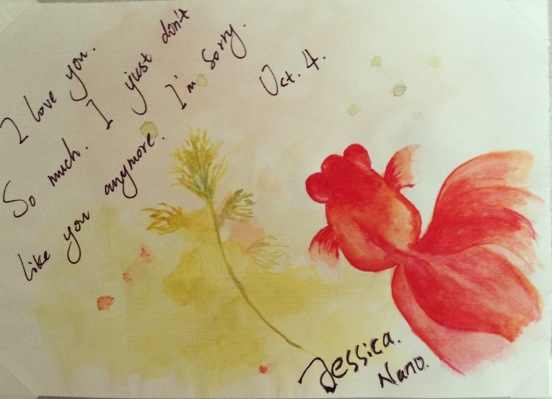 I love you.
So much. I just don't
like you anymore. I'm Sorry.
Oct. 4.
Jessica.
Nano.